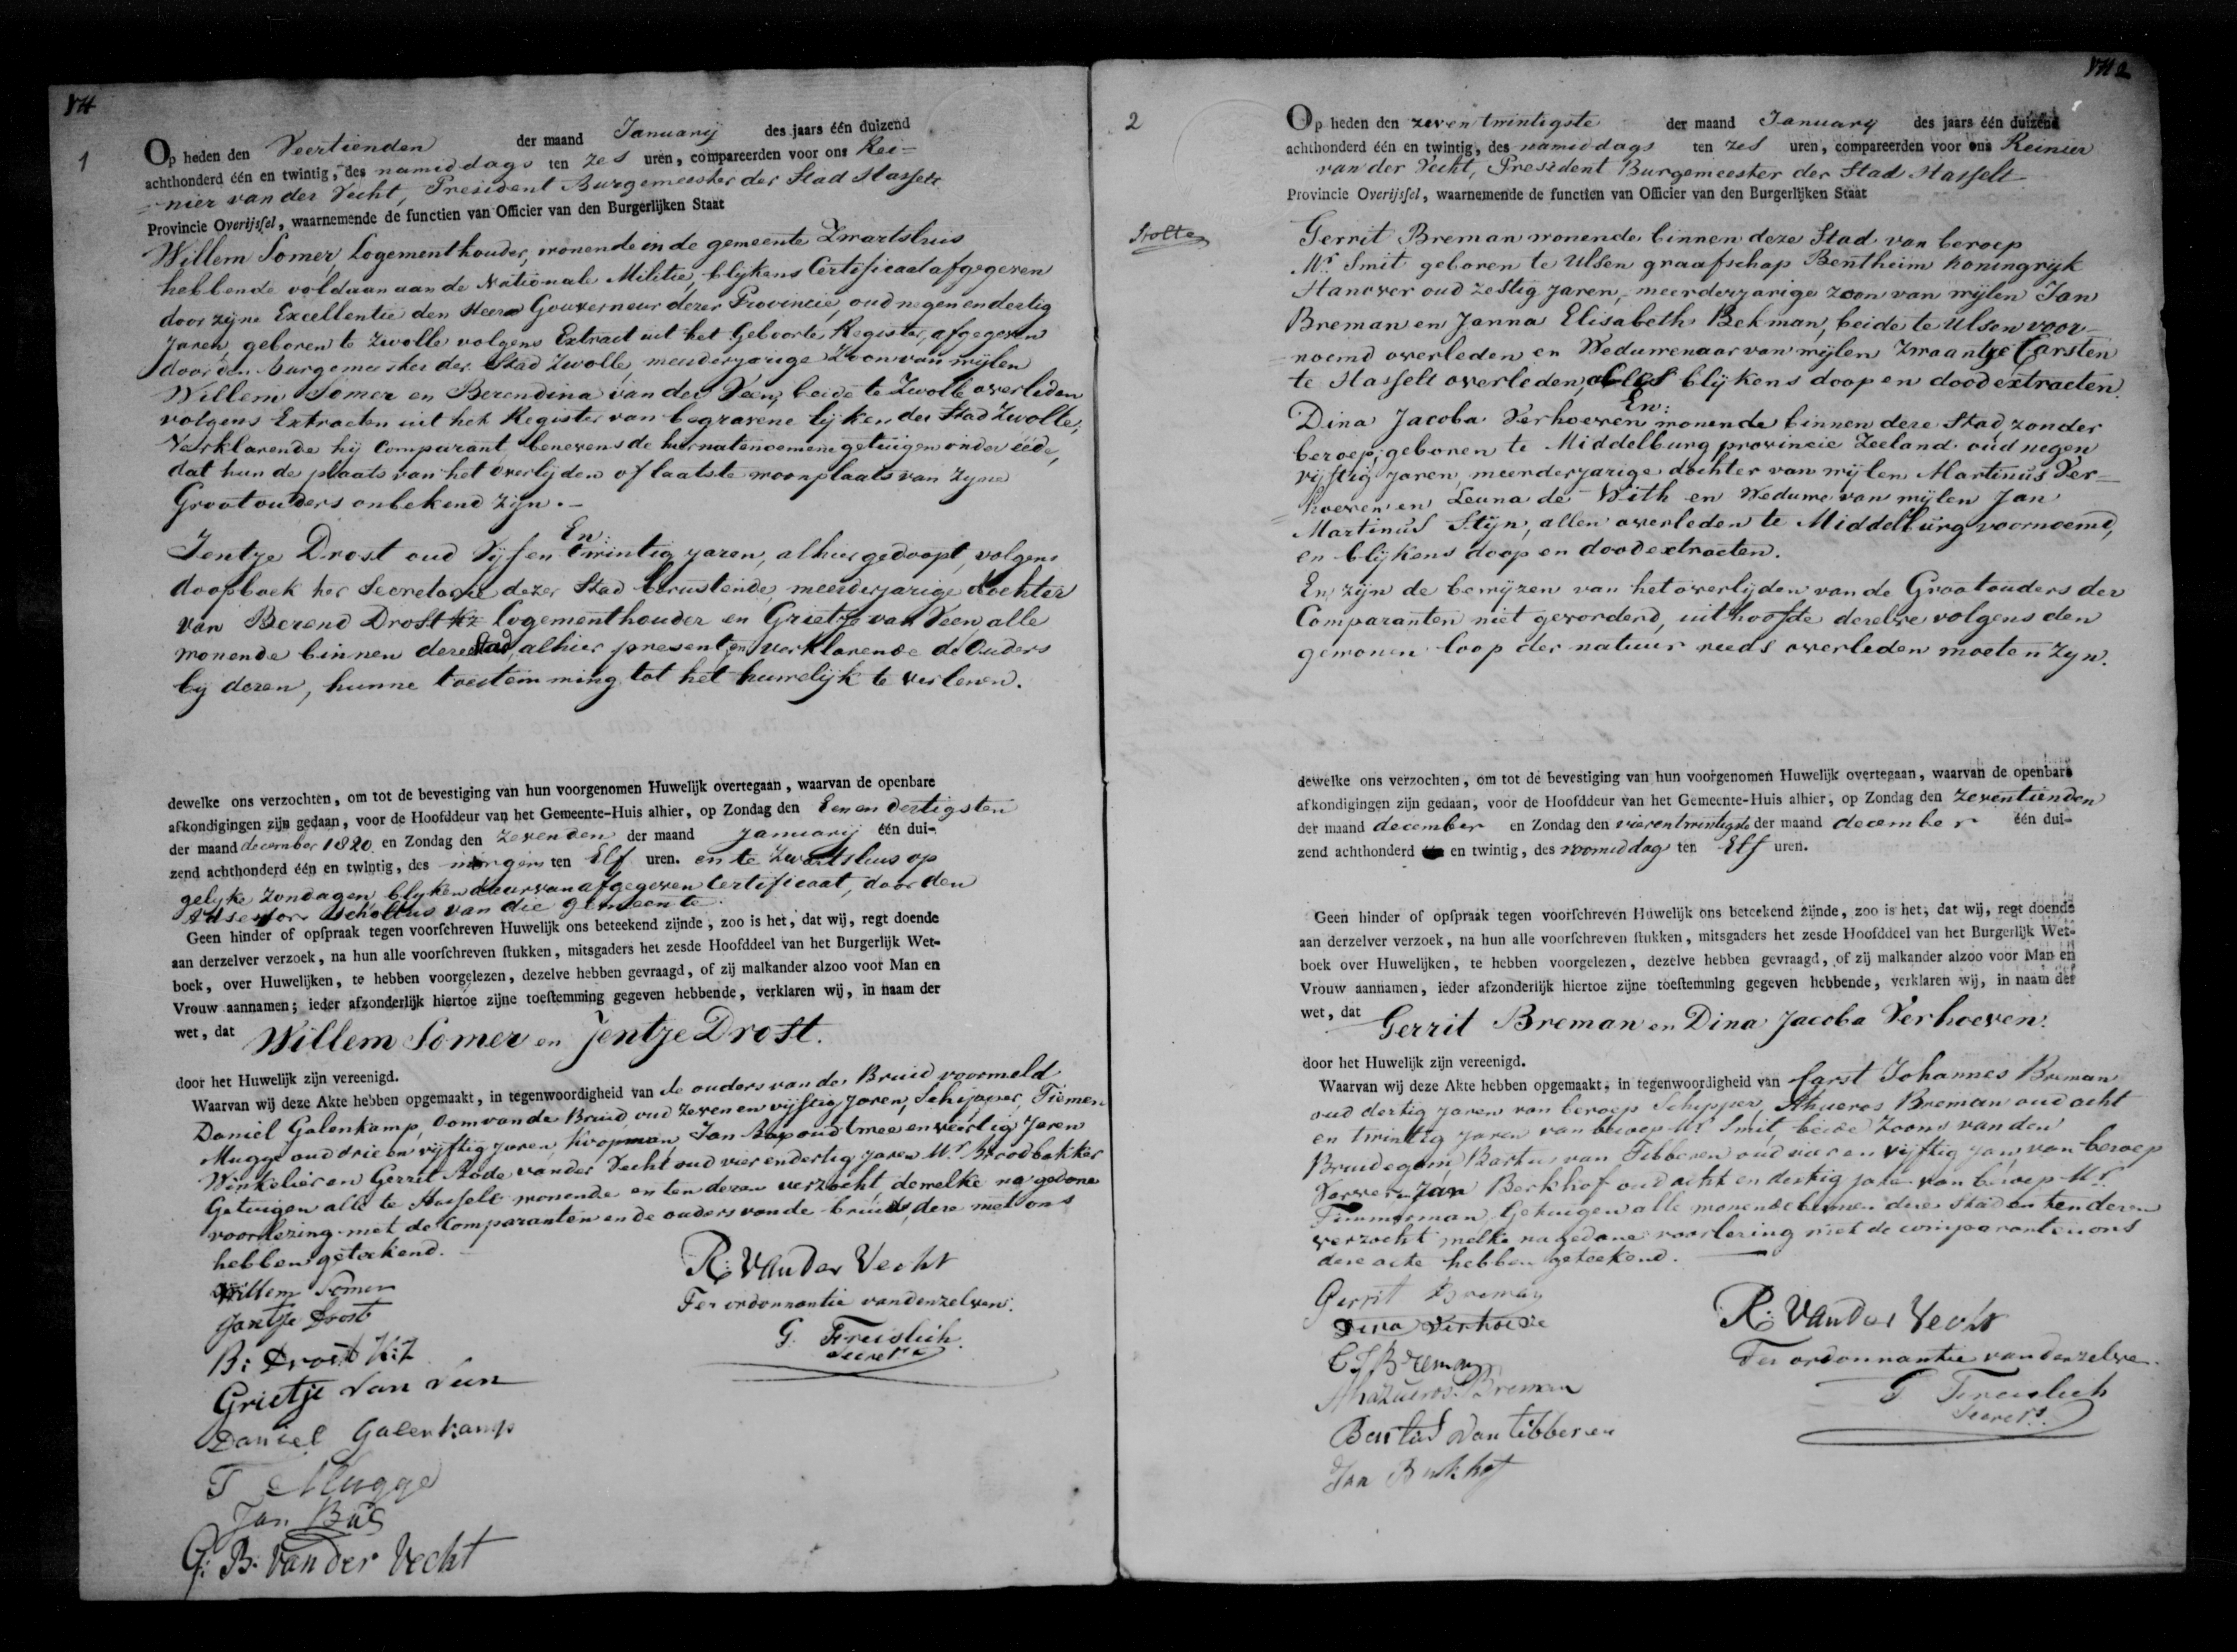 1
Op heden den Veertienden der maand Januarij des jaars één duizend
achthonderd één en twintig, des namiddags ten zes uren, compareerden voor ons Rei=
=nier van der Vecht, President Burgemeester der Stad Hasselt
Provincie Overijssel, waarnemende de functien van Officier van den Burgerlijken Staat
Willem Somer, Logementhouder, wonende in de gemeente Zwartsluis
hebbende voldaan aan de Nationale Militie, blijkens Certificaat afgegeven
door zijne Excellentie den Heere Gouverneur dezer Provincie, oud negen en dertig
Jaren, geboren te Zwolle volgens Extract uit het Geboorte Register, afgegeven
door den Burgemeester der Stad Zwolle, meerderjarige Zoon van wijlen
Willem Somer en Berendina van der Veen, beide te Zwolle overleden
volgens Extracten uit het Register van begravene lijken der Stad Zwolle,
Verklarende hij Comparant benevens de hiernatenoemene getuigen onder eede,
dat hun de plaats van het overlijden of laatste woonplaats van zijne
Grootouders onbekend zijn.-
En:
Jentje Drost oud Vijf en twintig jaren, alhier gedoopt, volgens
doopboek ter Secretarie dezer Stad berustende, meerderjarige dochter
van Berend Drost Kz Logementhouder en Grietje van Veen, alle
wonende binnen deze Stad, alhier present, en verklarende de Ouders
bij dezen, hunne toestemming tot het huwelijk te verlenen.
dewelke ons verzochten, om tot de bevestiging van hun voorgenomen Huwelijk overtegaan, waarvan de openbare
afkondigingen zijn gedaan, voor de Hoofddeur van het Gemeente-Huis alhier, op Zondag den Een en dertigsten
der maand december 1820 en Zondag den zevenden der maand Januarij één dui-
zend achthonderd één en twintig, des morgens ten Elf uren. en te Zwartsluis op
gelijke Zondagen, blijken daarvan afgegeven Certificaat, door den
Adsessor Scholtus van die gemeente.
Geen hinder of opspraak tegen voorschreven Huwelijk ons beteekend zijnde, zoo is het, dat wij, regt doende
aan derzelver verzoek, na hun alle voorschreven stukken, mitsgaders het zesde Hoofddeel van het Burgerlijk Wet-
boek, over Huwelijken, te hebben voorgelezen, dezelve hebben gevraagd, of zij malkander alzoo voor Man en
Vrouw aannamen; ieder afzonderlijk hiertoe zijne toestemming gegeven hebbende, verklaren wij, in naam der
wet, dat Willem Somer en Jentje Drost.
door het Huwelijk zijn vereenigd.
Waarvan wij deze Akte hebben opgemaakt, in tegenwoordigheid van de ouders van de Bruid voormeld
Daniel Galenkamp, Oom van de Bruid, oud zeven en vijftig Jaren, Schipper, Tiemen
Mugge oud drie en vijftig Jaren, Koopman, Jan Bus oud twee en veertig Jaren
Winkelier en Gerrit Bode van der Vecht oud vier en dertig Jaren Mr. Broodbakker
Getuigen alle te Hasselt wonende en ten dezen verzocht dewelke na gedane
voorlezing met de Comparanten en de ouders van de bruid, deze met ons
hebben geteekend.
Willem Somer
Jantje Drost
B: Drost K:Z
Grietje van veen
Daniel Galenkamp
T Mugge
Jan Bus
G: B. van der Vecht
R: van der Vecht
Ter ordonnantie van denzelven.
G. Freislich
Secrets
2
Stolte
Op heden den zeven twintigste der maand January des jaars één duizend
achthonderd één en twintig, des namiddags ten zes uren, compareerden voor ons Reinier
van der Vecht, President Burgemeester der Stad Hasselt
Provincie Overijssel, waarnemende de functien van Officier van den Burgerlijken Staat
Gerrit Breman wonende binnen deze Stad van beroep
Mr. Smit geboren te Ulsen graafschap Bentheim koningrijk
Hanover oud zestig jaren, meerderjarige zoon van wijlen Jan
Breman en Janna Elisabeth Bekman, beide te Ulsen voor-
-noemd overleden en Weduwenaar van wijlen Zwaantje Carsten
te Hasselt overleden, alles blijkens doop en dood extracten.
En:
Dina Jacoba Verhoeven wonende binnen deze Stad zonder
beroep, geboren te Middelburg provincie Zeeland oud negen
vijftig jaren, meerderjarige dochter van wijlen Martinus Ver=
=hoeven en Leuna de With en Weduwe van wijlen Jan
Martinus Stijn, allen overleden te Middelburg voornoemd,
en blijkens doop en dood extracten.
En zijn de bewijzen van het overlijden van de Grootouders der
Comparanten niet gevorderd, uit hoofde dezelve volgens den
gewonen loop der natuur reeds overleden moeten zijn.
dewelke ons verzochten, om tot de bevestiging van hun voorgenomen Huwelijk overtegaan, waarvan de openbare
afkondigingen zijn gedaan, voor de Hoofddeur van het Gemeente-Huis alhier, op Zondag den zeventienden
der maand december en Zondag den vierentwintigste der maand december één dui-
zend achthonderd en twintig, des voormiddag ten Elf uren.
Geen hinder of opspraak tegen voorschreven Huwelijk ons beteekend zijnde, zoo is het, dat wij, regt doende
aan derzelver verzoek, na hun alle voorschreven stukken, mitsgaders het zesde Hoofddeel van het Burgerlijk Wet-
boek over Huwelijken, te hebben voorgelezen, dezelve hebben gevraagd, of zij malkander alzoo voor Man en
Vrouw aannamen, ieder afzonderlijk hiertoe zijne toestemming gegeven hebbende, verklaren wij, in naam der
wet, dat Gerrit Breman en Dina Jacoba Verhoeven.
door het Huwelijk zijn vereenigd.
Waarvan wij deze Akte hebben opgemaakt, in tegenwoordigheid van Carst Johannes Breman
oud dertig jaren van beroep Schipper, Ahueros Breman oud acht
en twintig jaren van beroep Mr. Smit, beide Zoons van den
Bruidegom, Bartus van Tibberen oud vier en vijftig jaren van beroep
Verwer en Jan Berkhof oud acht en dertig jaren van beroep Mr.
Timmerman, Getuigen alle wonende binnen deze Stad en ten dezen
verzocht welke na gedane voorlezing met de comparanten ons
deze acte hebben geteekend.
Gerrit Breman
Dina Verhoeve
C J Breman
Ahazueros Breman
Bartus van tibberen
Jan Berkhof
R: van der Vecht
Ter ordonnantie van denzelve.
Freislich
Secrets.